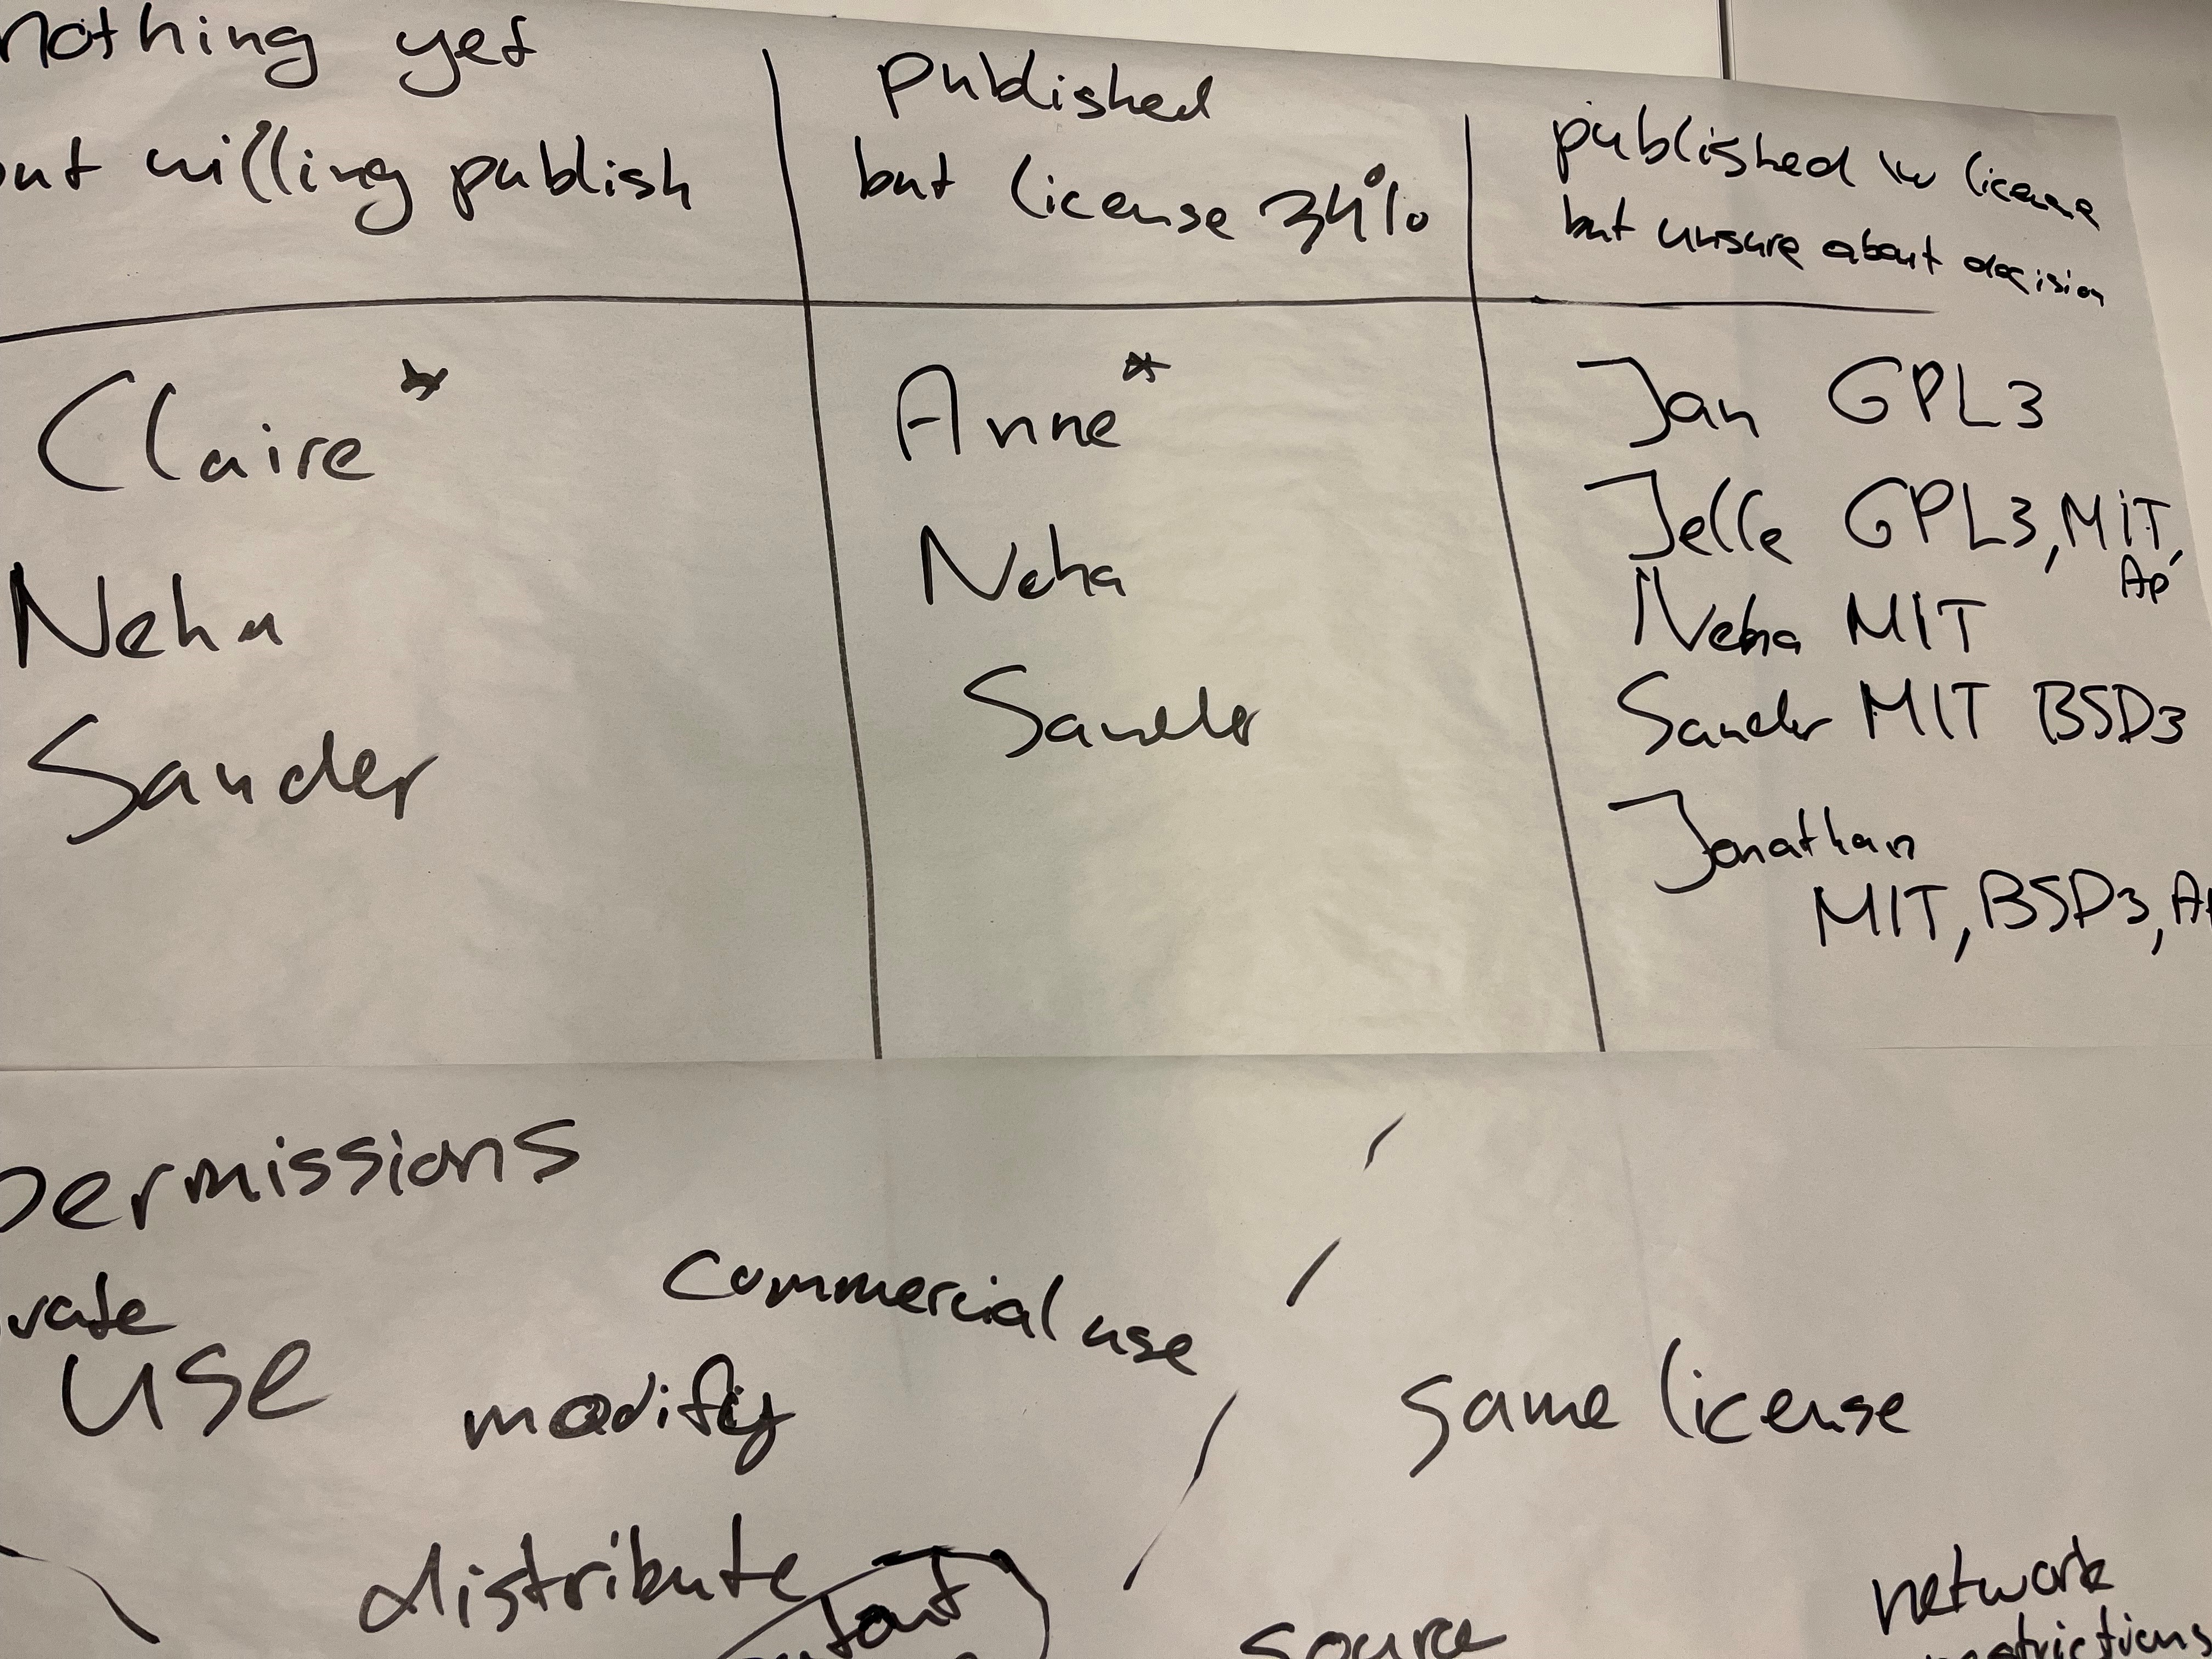 nothing yet
but willing publish
published
but license 34%
published w license
but unsure about decision
Claire *
Neha
Sander
Anne *
Neha
Sander
Jan GPL3
Jelle GPL3, MIT,
Ap
Neha MIT
Sander MIT BSD3
Jonathan
MIT, BSD3, Ap
permissions
commercial use
use
modify
same license
distribute
source
network
restrictions